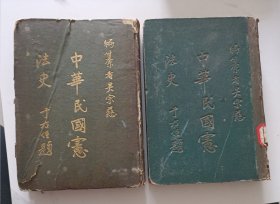 編纂者吳宗慈
中華民國憲
法史 于右任題
編纂者吳宗慈
中華民國憲
法史 于右任題